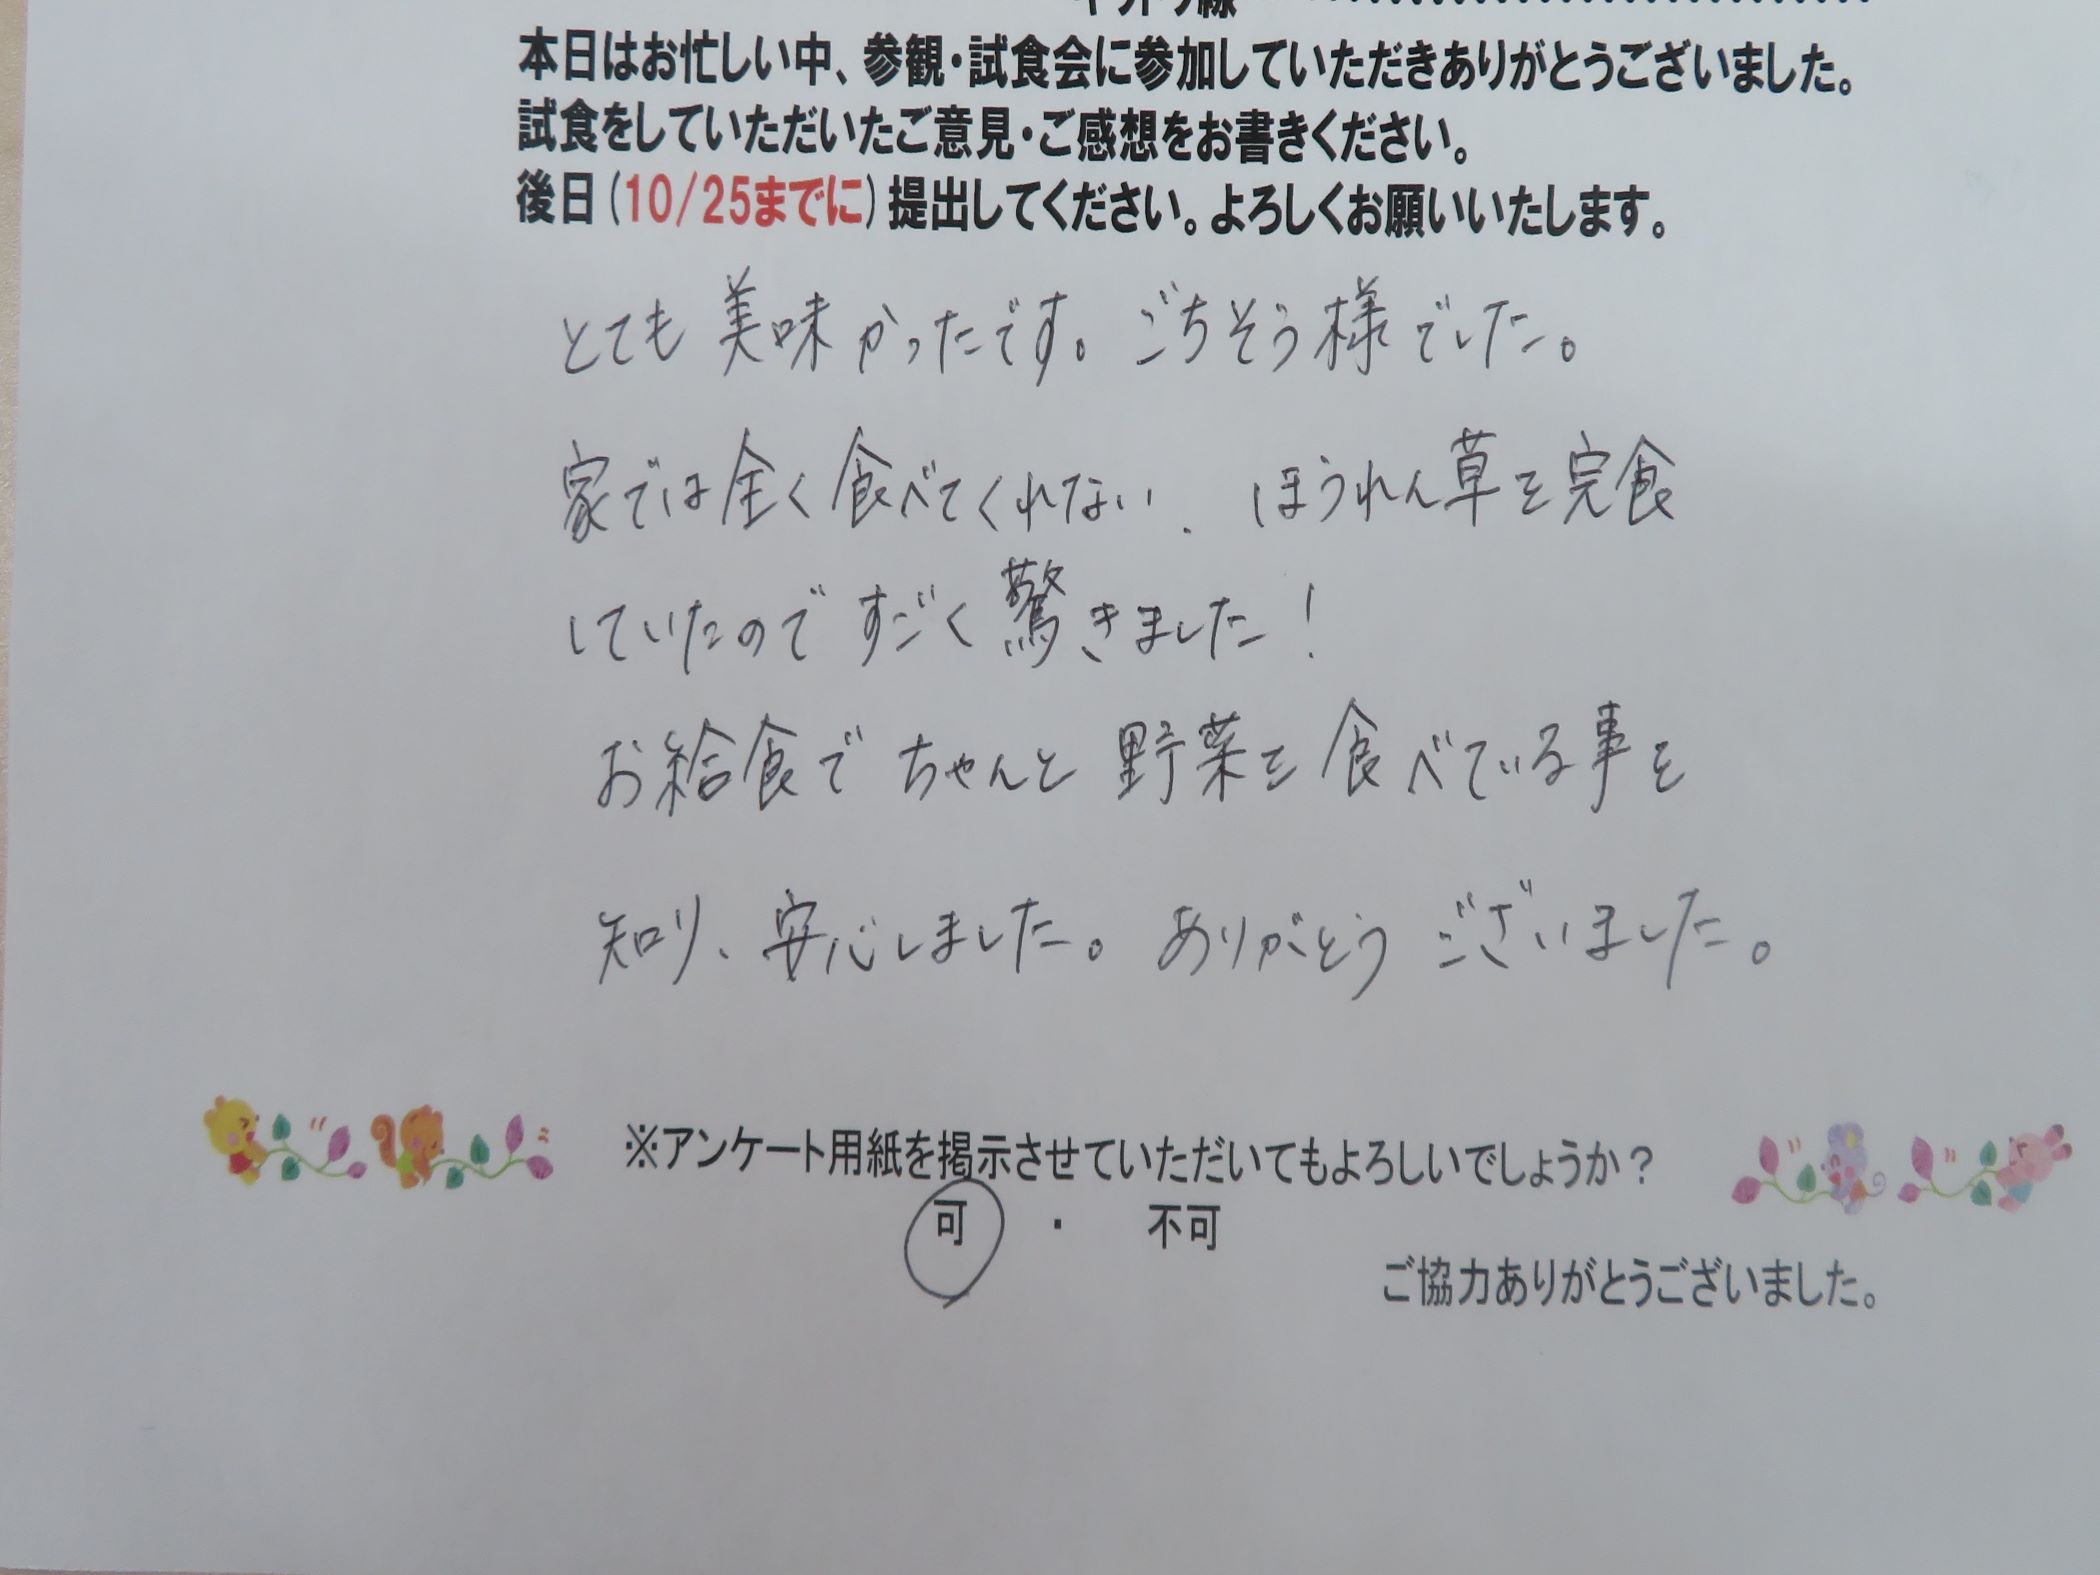 キリトリ線
本日はお忙しい中、参観・試食会に参加していただきありがとうございました。
試食をしていただいたご意見・ご感想をお書きください。
後日(10/25までに)提出してください。よろしくお願いいたします。
とても美味かったです。ごちそう様でした。
家では全く食べてくれない、ほうれん草を完食
していたのですごく驚きました!
お給食でちゃんと野菜を食べている事を
知り、安心しました。ありがとうございました。
※アンケート用紙を掲示させていただいてもよろしいでしょうか?
可 ・ 不可
ご協力ありがとうございました。